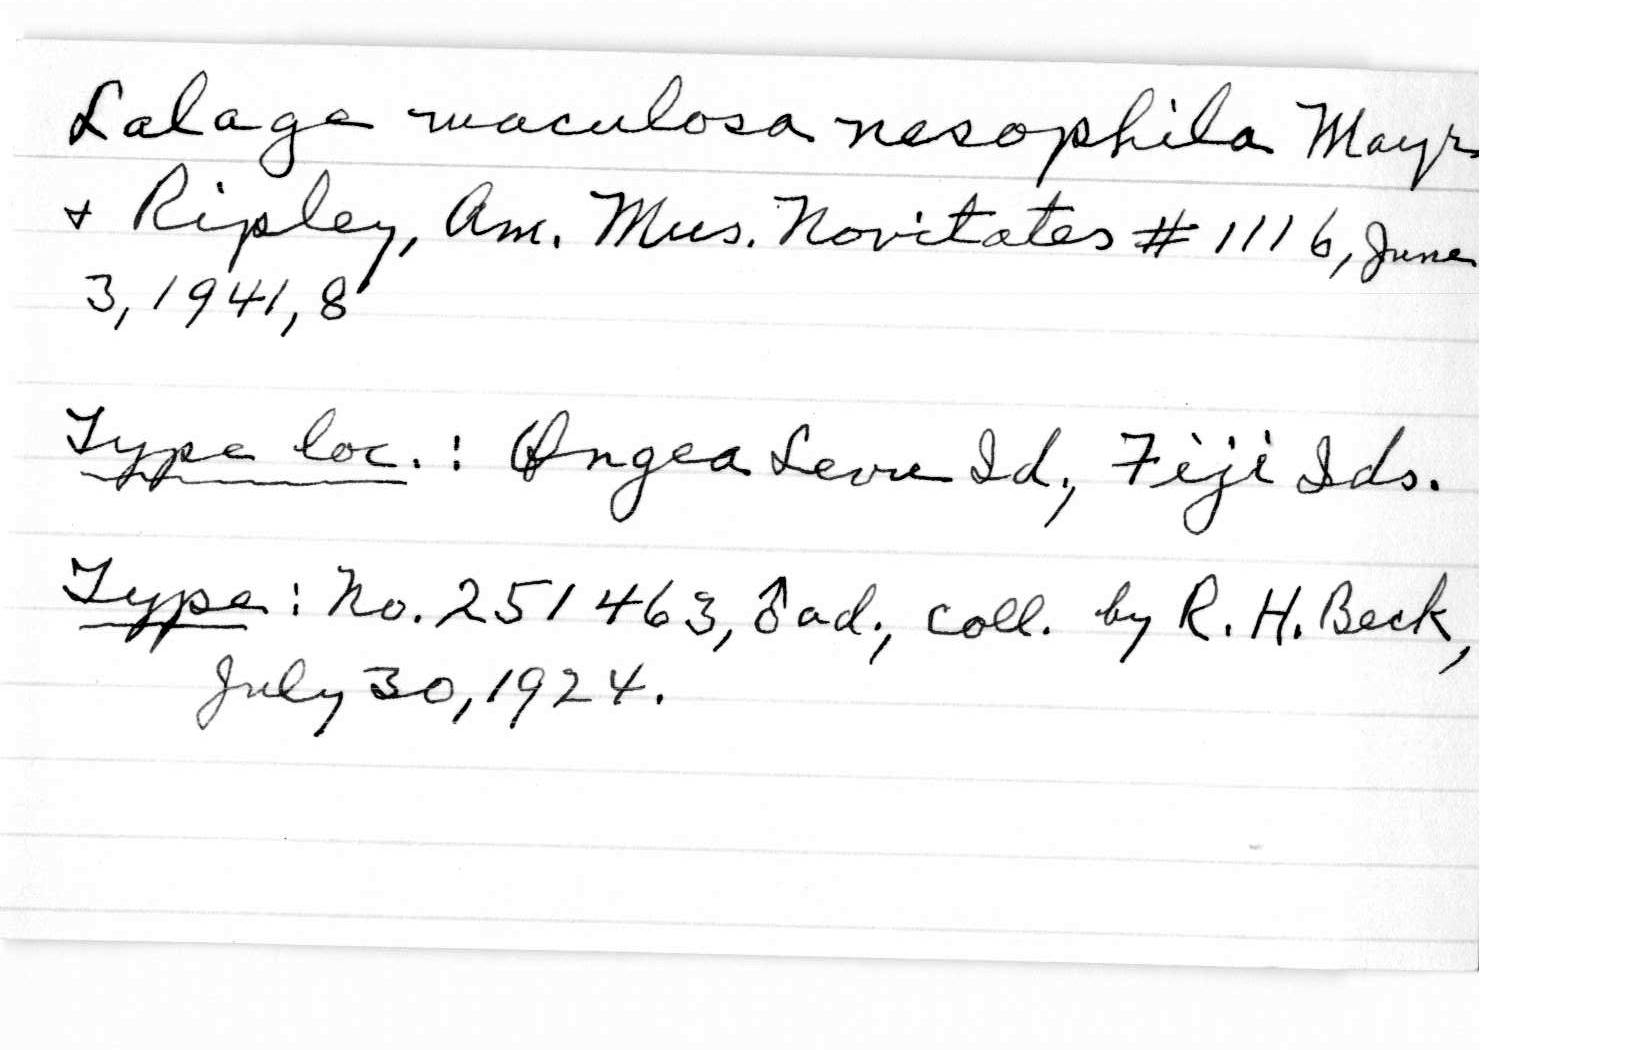 Lalage maculosa nesophila Mayr
+ Ripley, Am. Mus. Novitates # 1116, June
3, 1941, 8
Type loc. : Ongea Levu Id., Fiji Ids.
Type : No. 251463, ♂ ad., coll. by R. H. Beck,
July 30, 1924.